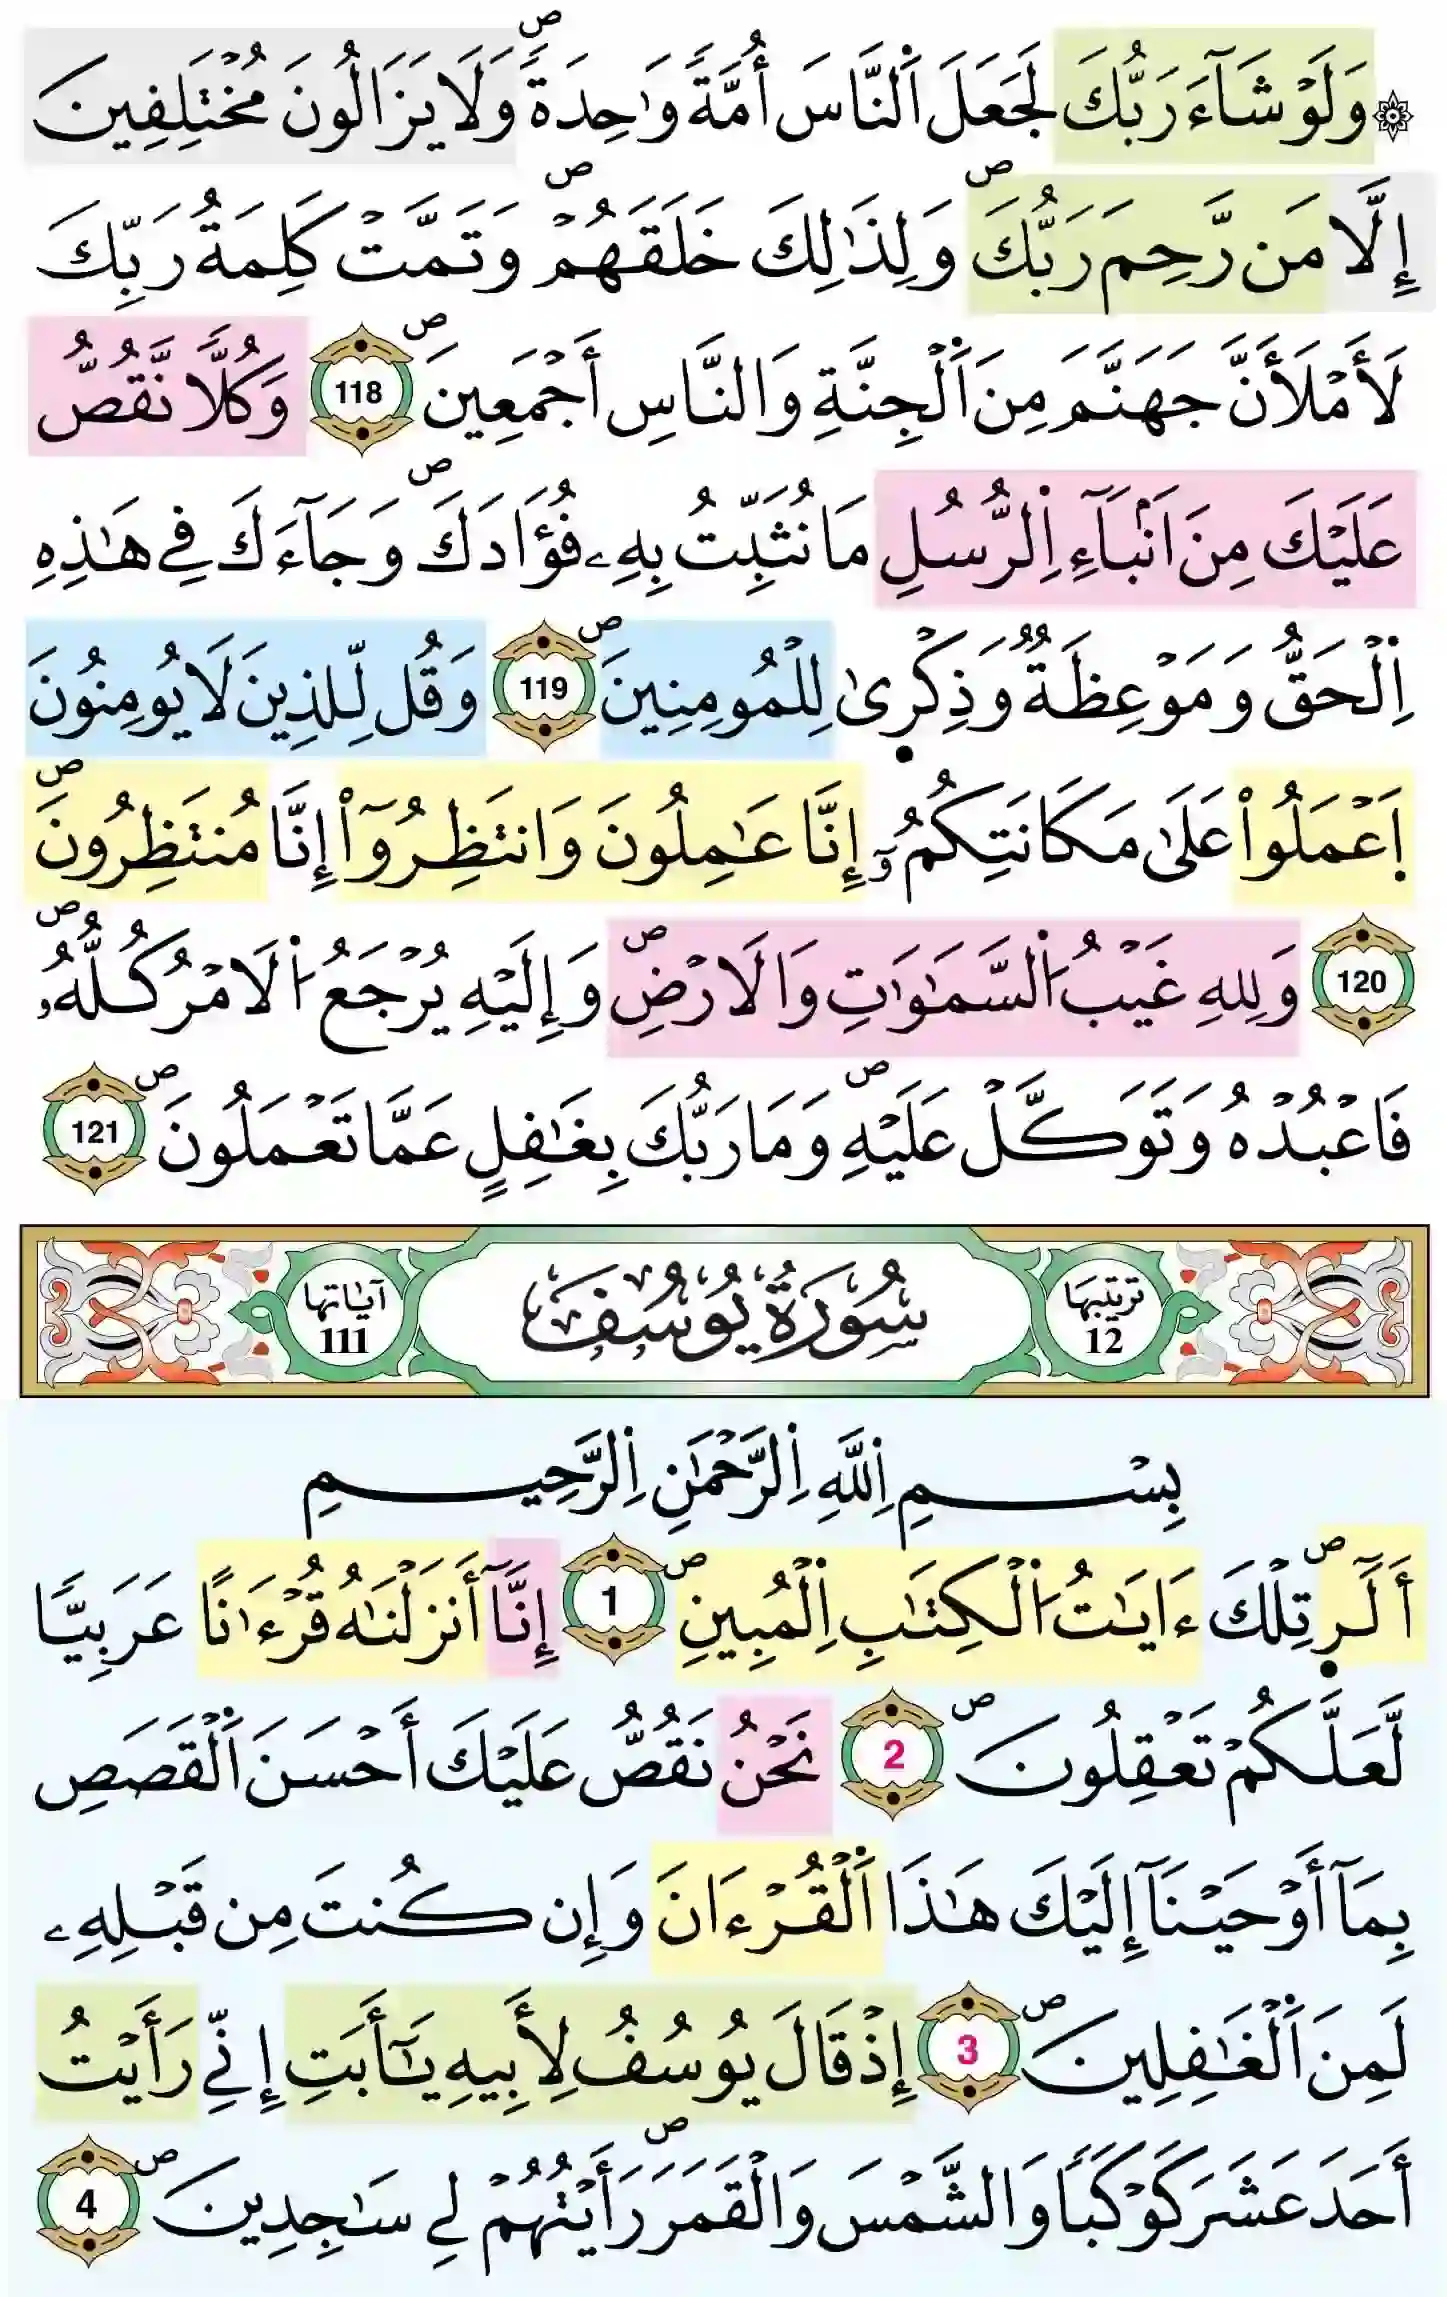 وَلَوْ شَآءَ رَبُّكَ لَجَعَلَ اَ۬لنَّاسَ أُمَّةٗ وَٰحِدَةٗۖ وَلَا يَزَالُونَ مُخْتَلِفِينَ
إِلَّا مَن رَّحِمَ رَبُّكَۖ وَلِذَٰلِكَ خَلَقَهُمْۖ وَتَمَّتْ كَلِمَةُ رَبِّكَ
لَأَمْلَأَنَّ جَهَنَّمَ مِنَ اَ۬لْجِنَّةِ وَالنَّاسِ أَجْمَعِينَۖ 118 وَكُلّاٗ نَّقُصُّ
عَلَيْكَ مِنَ اَنۢبَآءِ اِ۬لرُّسُلِ مَا نُثَبِّتُ بِهِۦ فُؤَادَكَۖ وَجَآءَكَ فِے هَٰذِهِ
اِ۬لْحَقُّ وَمَوْعِظَةٞ وَذِكْر۪ىٰ لِلْمُومِنِينَۖ 119 وَقُل لِّلذِينَ لَا يُومِنُونَ
اَ۪عْمَلُواْ عَلَىٰ مَكَانَتِكُمُۥٓ إِنَّا عَٰمِلُونَ وَانتَظِرُوٓاْ إِنَّا مُنتَظِرُونَۖ
120 وَلِلهِ غَيْبُ اُ۬لسَّمَٰوَٰتِ وَالَارْضِۖ وَإِلَيْهِ يُرْجَعُ اُ۬لَامْرُ كُلُّهُۥۖ
فَاعْبُدْهُ وَتَوَكَّلْ عَلَيْهِۖ وَمَا رَبُّكَ بِغَٰفِلٍ عَمَّا تَعْمَلُونَۖ 121
ترتيبها 12 سُورَةُ يُوسُفَ آيَاتها 111
بِسْمِ اِ۬للَّهِ اِ۬لرَّحْمَٰنِ اِ۬لرَّحِيمِ
أَلَٓر۪ۖ تِلْكَ ءَايَٰتُ اُ۬لْكِتَٰبِ اِ۬لْمُبِينِۖ 1 إِنَّآ أَنزَلْنَٰهُ قُرْءَٰناً عَرَبِيّاٗ
لَّعَلَّكُمْ تَعْقِلُونَۖ 2 نَحْنُ نَقُصُّ عَلَيْكَ أَحْسَنَ اَ۬لْقَصَصِ
بِمَآ أَوْحَيْنَآ إِلَيْكَ هَٰذَا اَ۬لْقُرْءَانَ وَإِن كُنتَ مِن قَبْلِهِۦ
لَمِنَ اَ۬لْغَٰفِلِينَۖ 3 إِذْ قَالَ يُوسُفُ لِأَبِيهِ يَٰٓأَبَتِ إِنِّے رَأَيْتُ
أَحَدَ عَشَرَ كَوْكَباٗ وَالشَّمْسَ وَالْقَمَرَۖ رَأَيْتُهُمْ لِے سَٰجِدِينَۖ 4